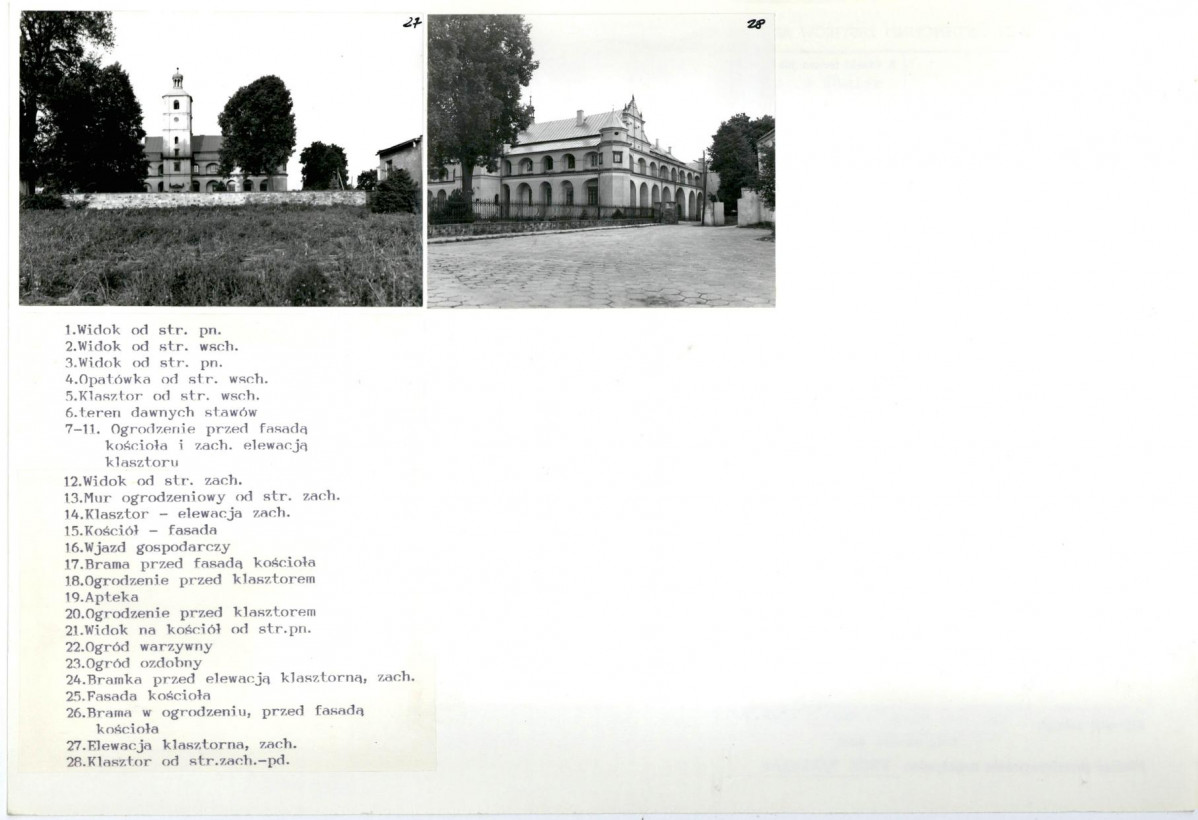 27
28
1.Widok od str. pn.
2.Widok od str. wsch.
3.Widok od str. pn.
4.Opatówka od str. wsch.
5.Klasztor od str. wsch.
6.teren dawnych stawów
7-11. Ogrodzenie przed fasadą
kościoła i zach. elewacją
klasztoru
12.Widok od str. zach.
13.Mur ogrodzeniowy od str. zach.
14.Klasztor – elewacja zach.
15.Kościół – fasada
16.Wjazd gospodarczy
17.Brama przed fasadą kościoła
18.Ogrodzenie przed klasztorem
19.Apteka
20.Ogrodzenie przed klasztorem
21.Widok na kościół od str.pn.
22.Ogród warzywny
23.Ogród ozdobny
24.Bramka przed elewacją klasztorną, zach.
25.Fasada kościoła
26.Brama w ogrodzeniu, przed fasadą
kościoła
27.Elewacja klasztorna, zach.
28.Klasztor od str.zach.-pd.